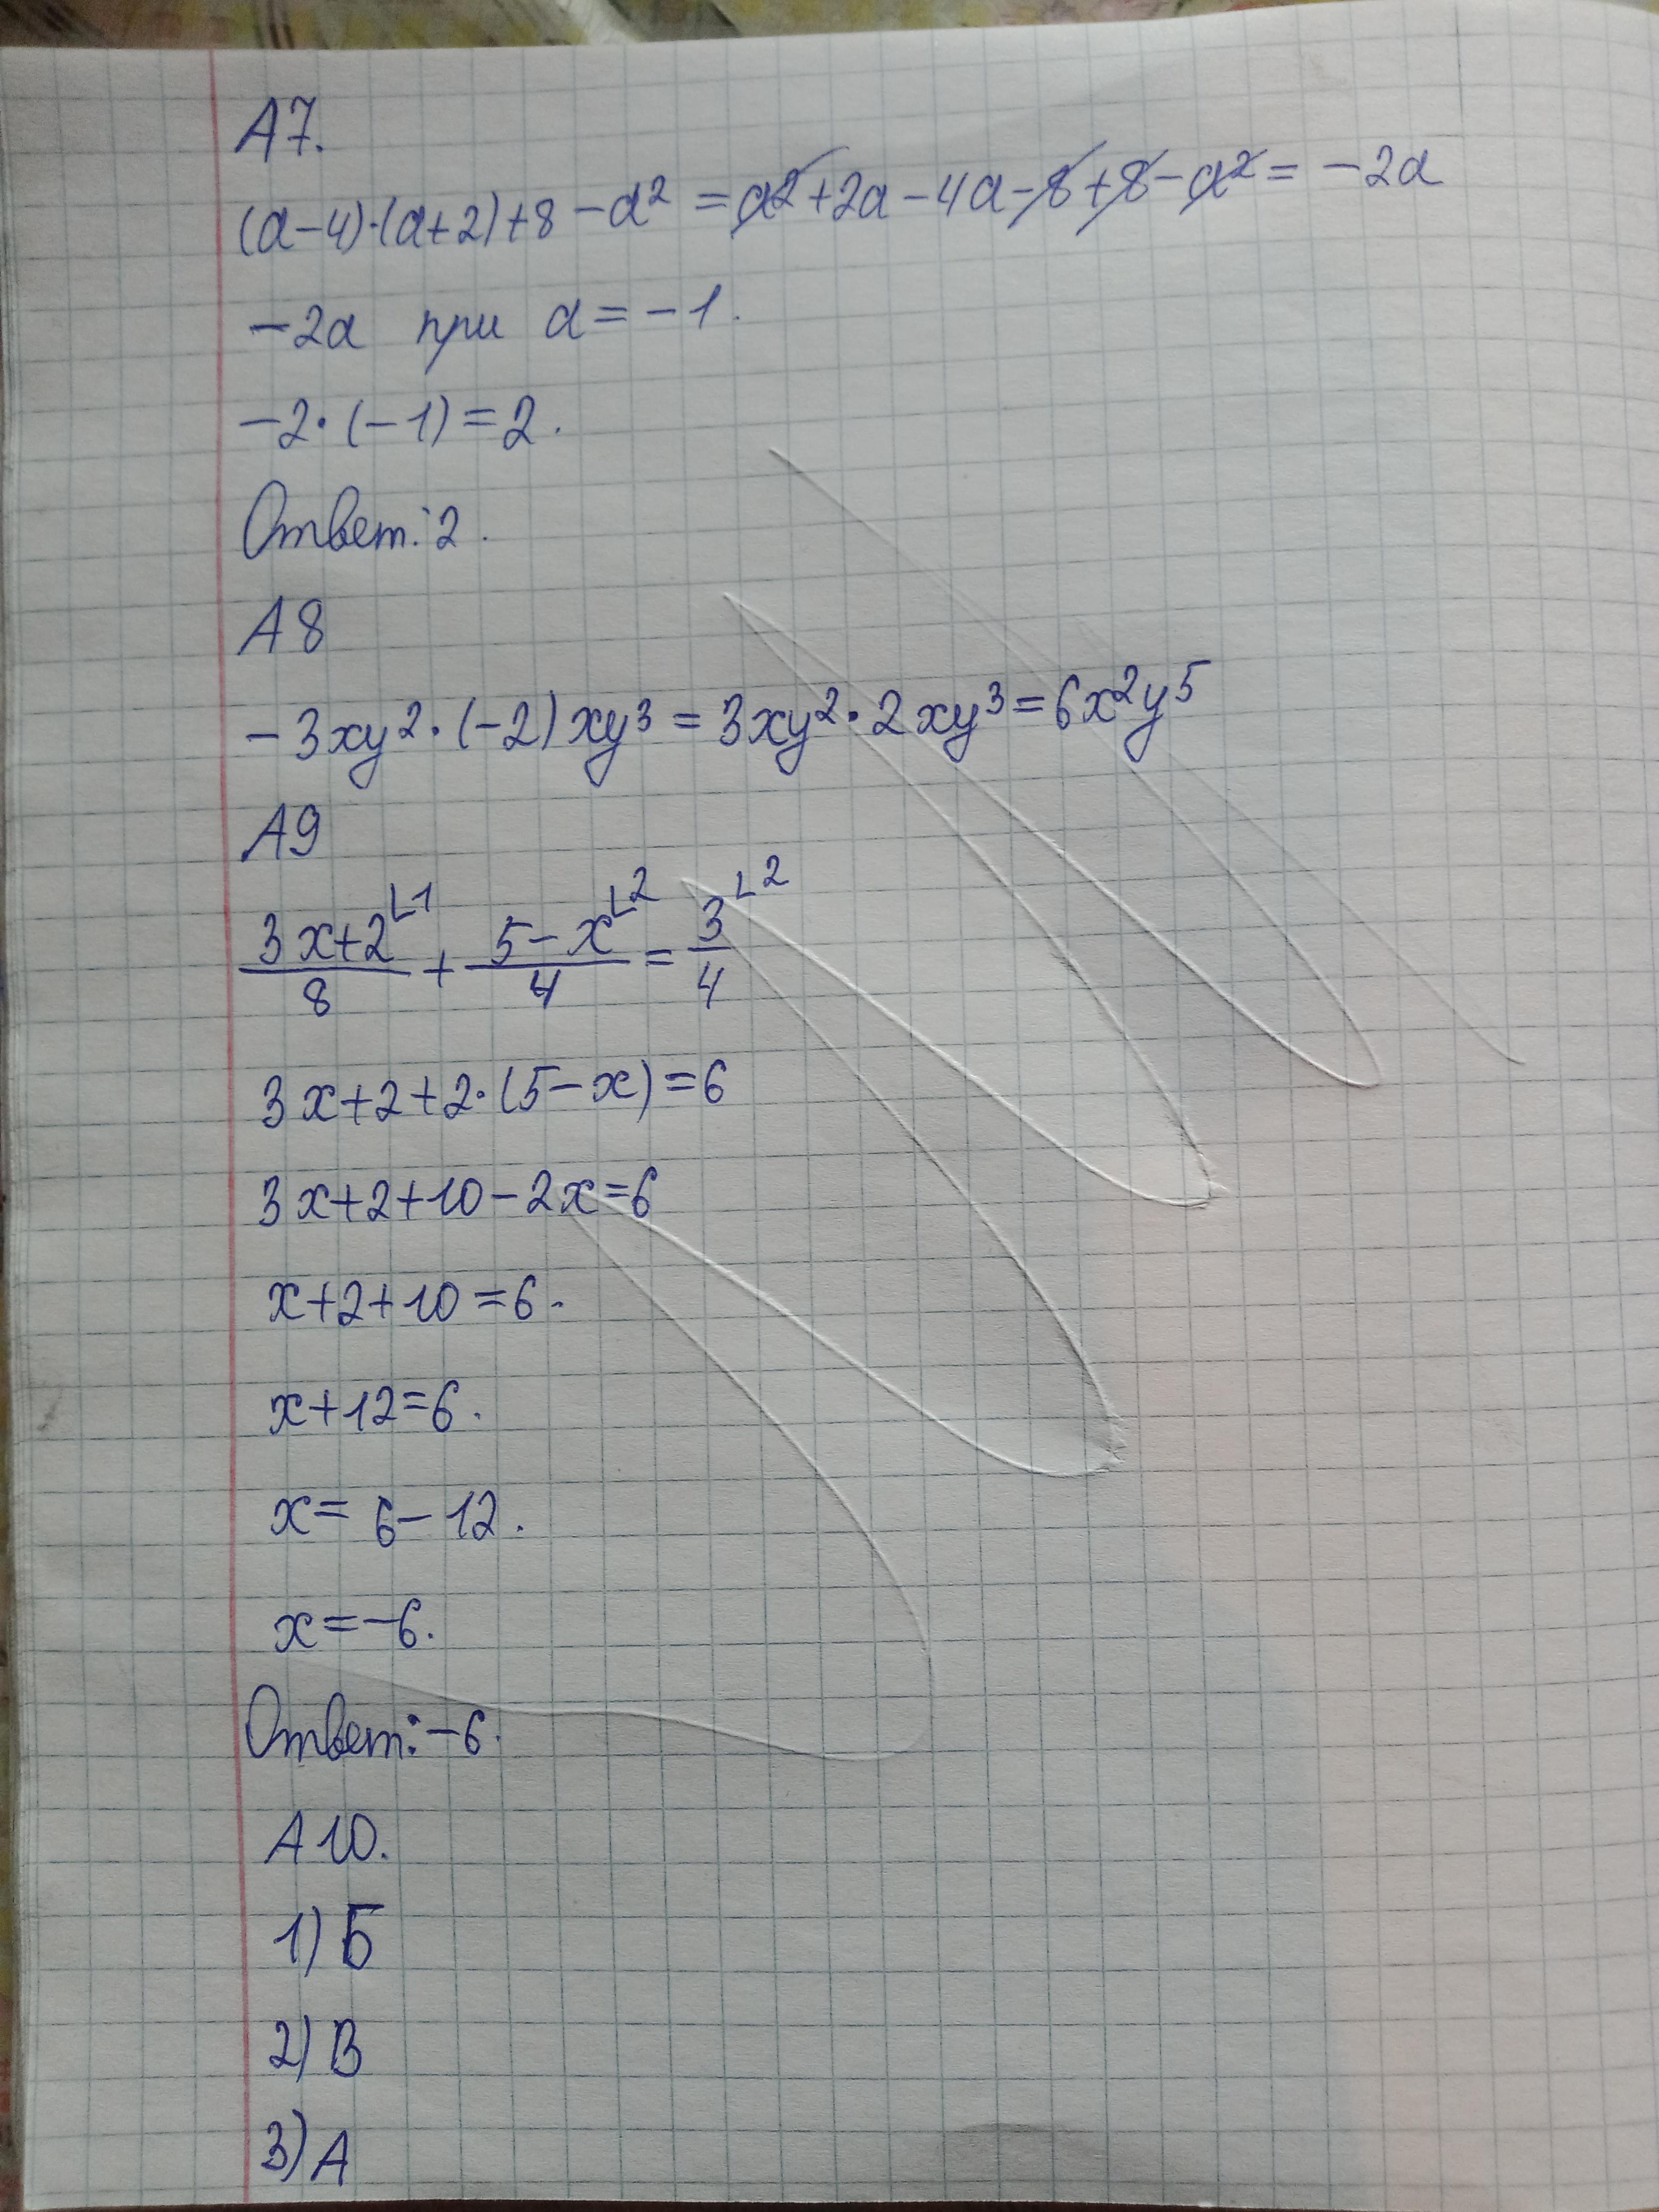 А7.
(a-4)·(a+2)+8-a² = a²+2a-4a-8+8-a² = -2a
-2a при a=-1.
-2·(-1)=2.
Ответ: 2.
А8
-3xy²·(-2)xy³ = 3xy²·2xy³ = 6x²y⁵
А9
(3x+2)/8 ∟1 + (5-x)/4 ∟2 = 3/4 ∟2
3x+2+2·(5-x)=6
3x+2+10-2x=6
x+2+10=6.
x+12=6.
x=6-12.
x=-6.
Ответ: -6.
А10.
1) Б
2) В
3) А